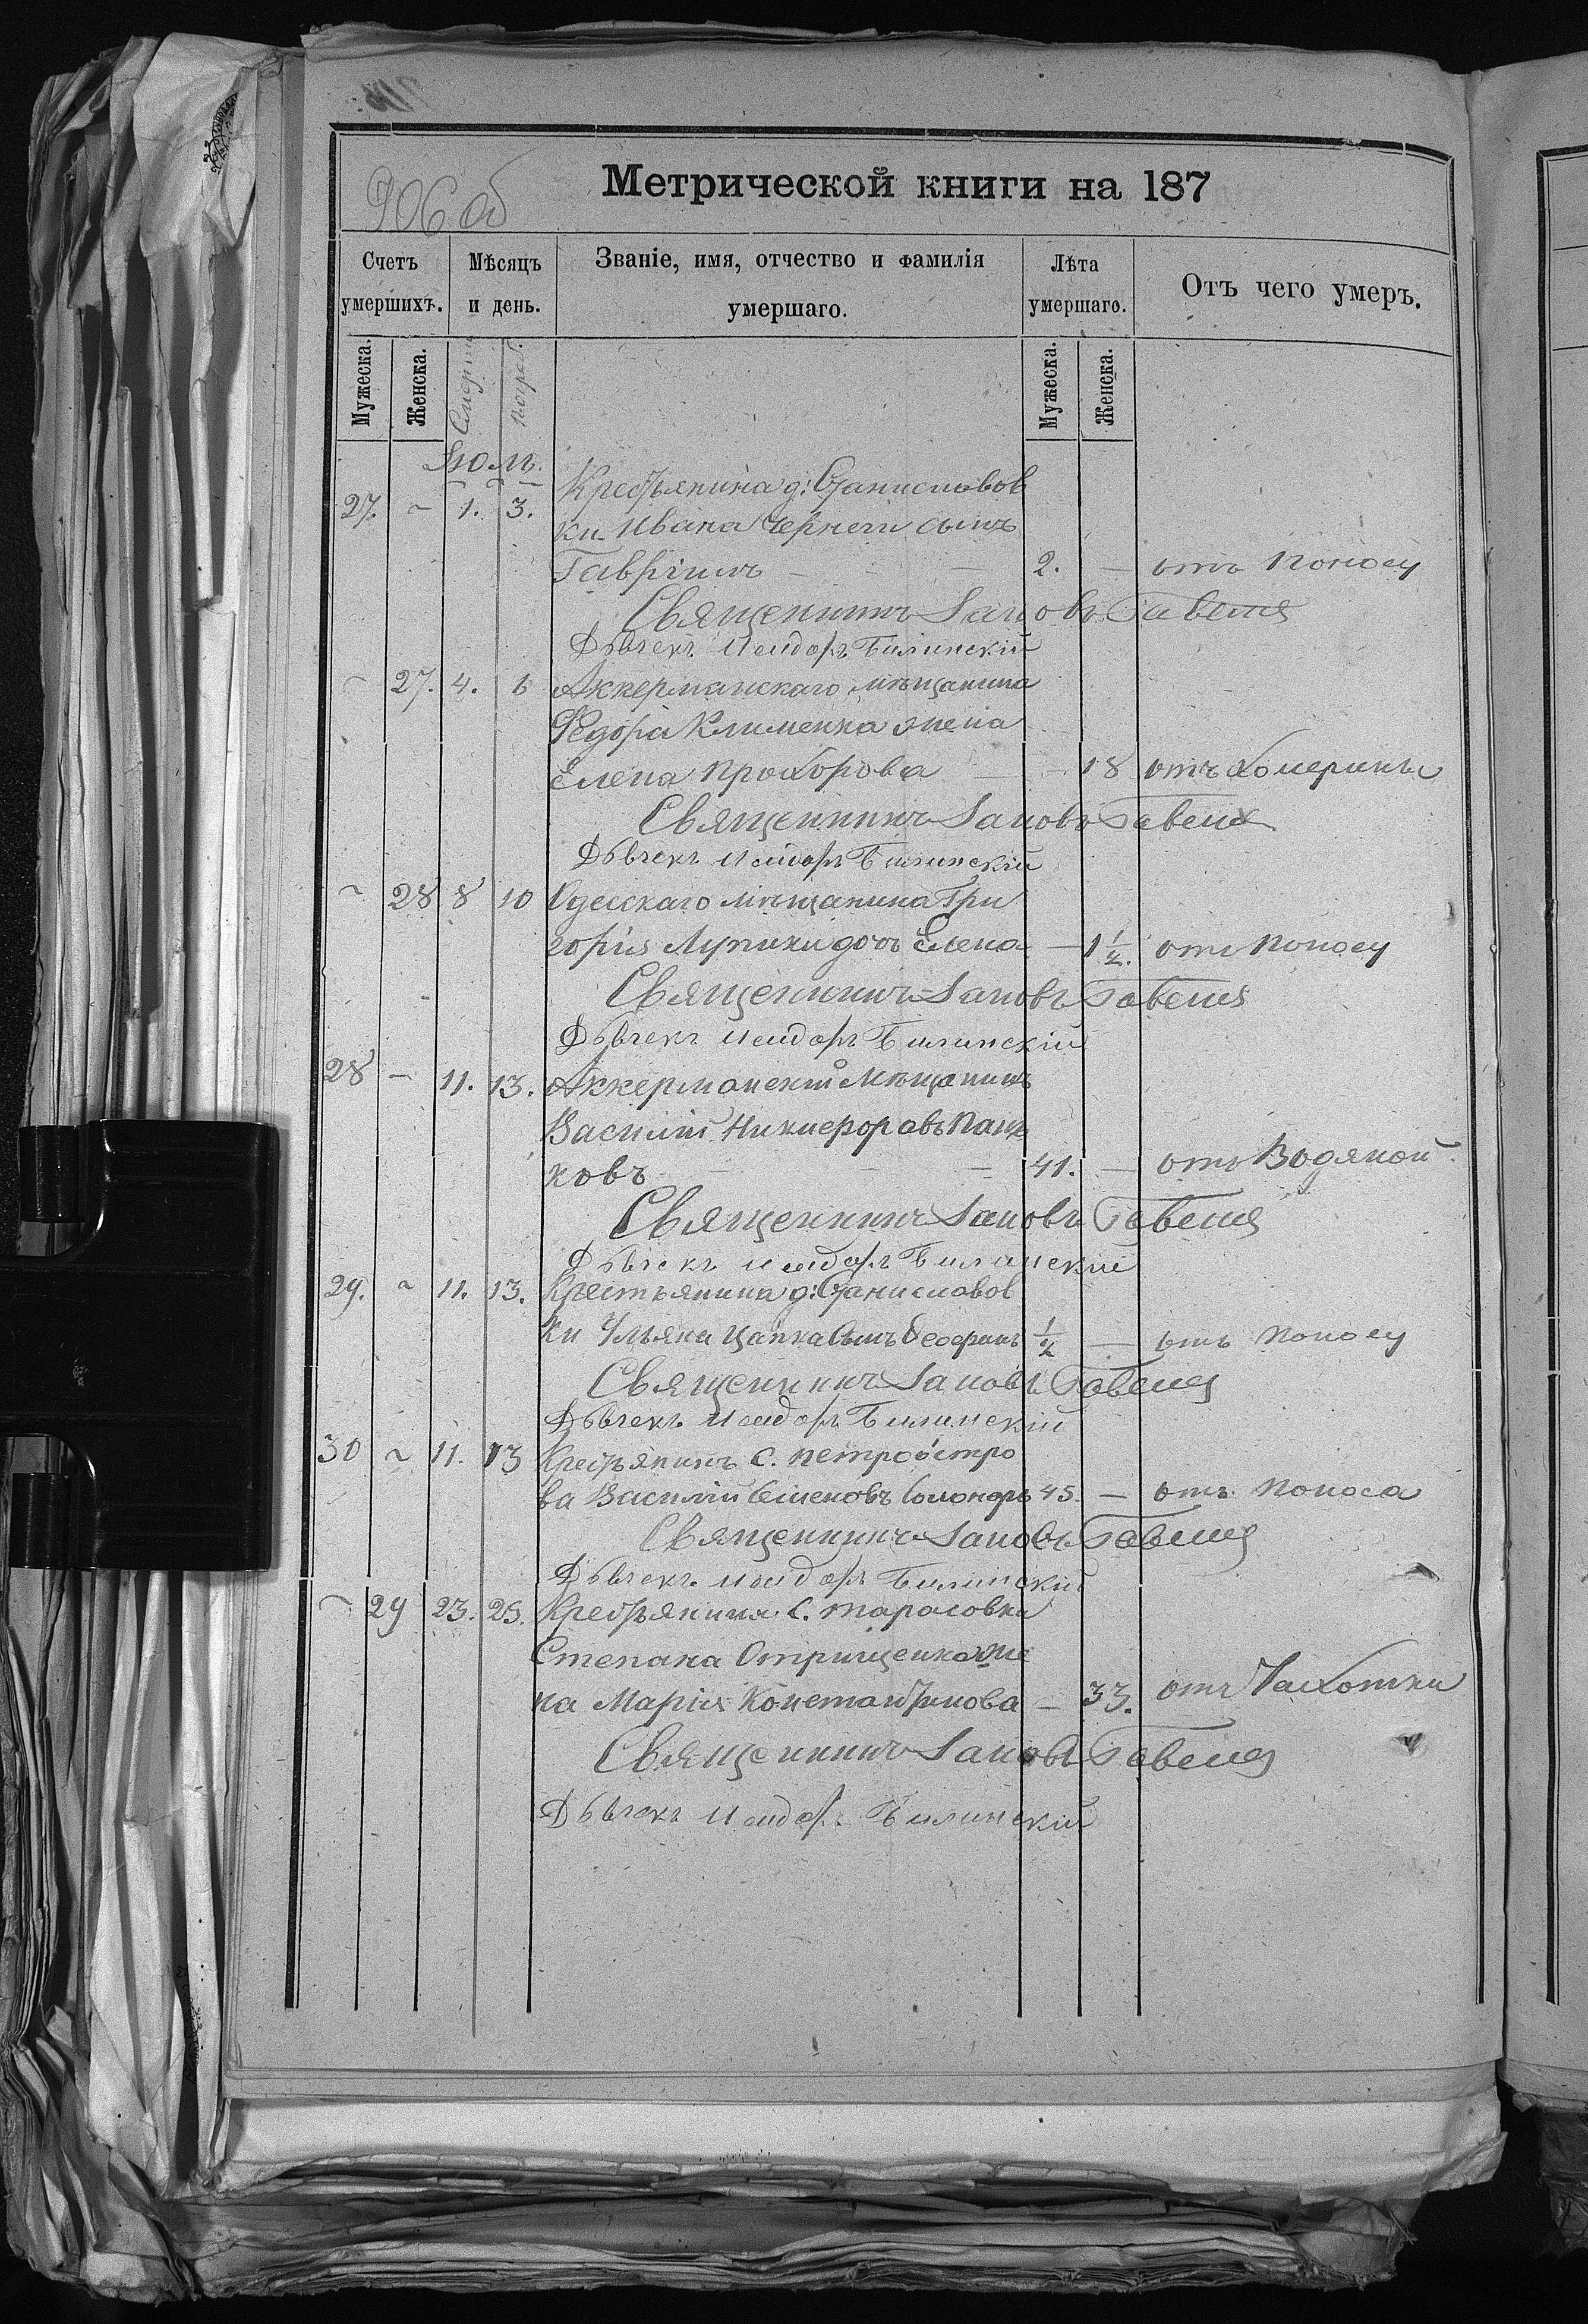 906 об
Метрической книги на 187
Счетъ умершихъ.
Мѣсяцъ и день.
Званіе, имя, отчество и фамилія умершаго.
Лѣта умершаго.
Отъ чего умеръ.
Мужеска. Женска. Смерти Погреб. Мужеска. Женска.
Іюль.
Крестьянина д: Станиславов
27. – 1. 3. ки Ивана Чернеги сынъ
Гавріилъ – – 2. – отъ поносу
Священникъ Іаковъ Бавеля
Дьячекъ Исидоръ Билинскій
– 27. 4. 6 Аккерманскаго мѣщанина
Ѳедора Клименка жена
Елена Прохорова – 18 отъ холерины
Священникъ Іаковъ Бавеля
Дьячекъ Исидоръ Билинскій
– 28 8 10 Одесскаго мѣщанина Гри
горія Лупики дочь Елена – 1 1/2. отъ поносу
Священникъ Іаковъ Бавеля
Дьячекъ Исидоръ Билинскій
28 – 11. 13. Аккерманскій мѣщанинъ
Василій Никифоровъ Пань
ковъ – – 41. – отъ водяной
Священникъ Іаковъ Бавеля
Дьячекъ Исидоръ Билинскій
29. – 11. 13. Крестьянина д: Станиславов
ки Ульяна Цапка сынъ Ѳеофанъ 1/2 – отъ поносу
Священникъ Іаковъ Бавеля
Дьячекъ Исидоръ Билинскій
30 – 11. 13 Крестьянинъ с. Петроостро
ва Василій Семеновъ 45. – отъ поноса
Священникъ Іаковъ Бавеля
Дьячекъ Исидоръ Билинскій
– 29 23. 25. Крестьянина с. Тарасовки
Степана Отрищенка же
на Марія Константинова – 33. отъ чахотки
Священникъ Іаковъ Бавеля
Дьячекъ Исидоръ Билинскій